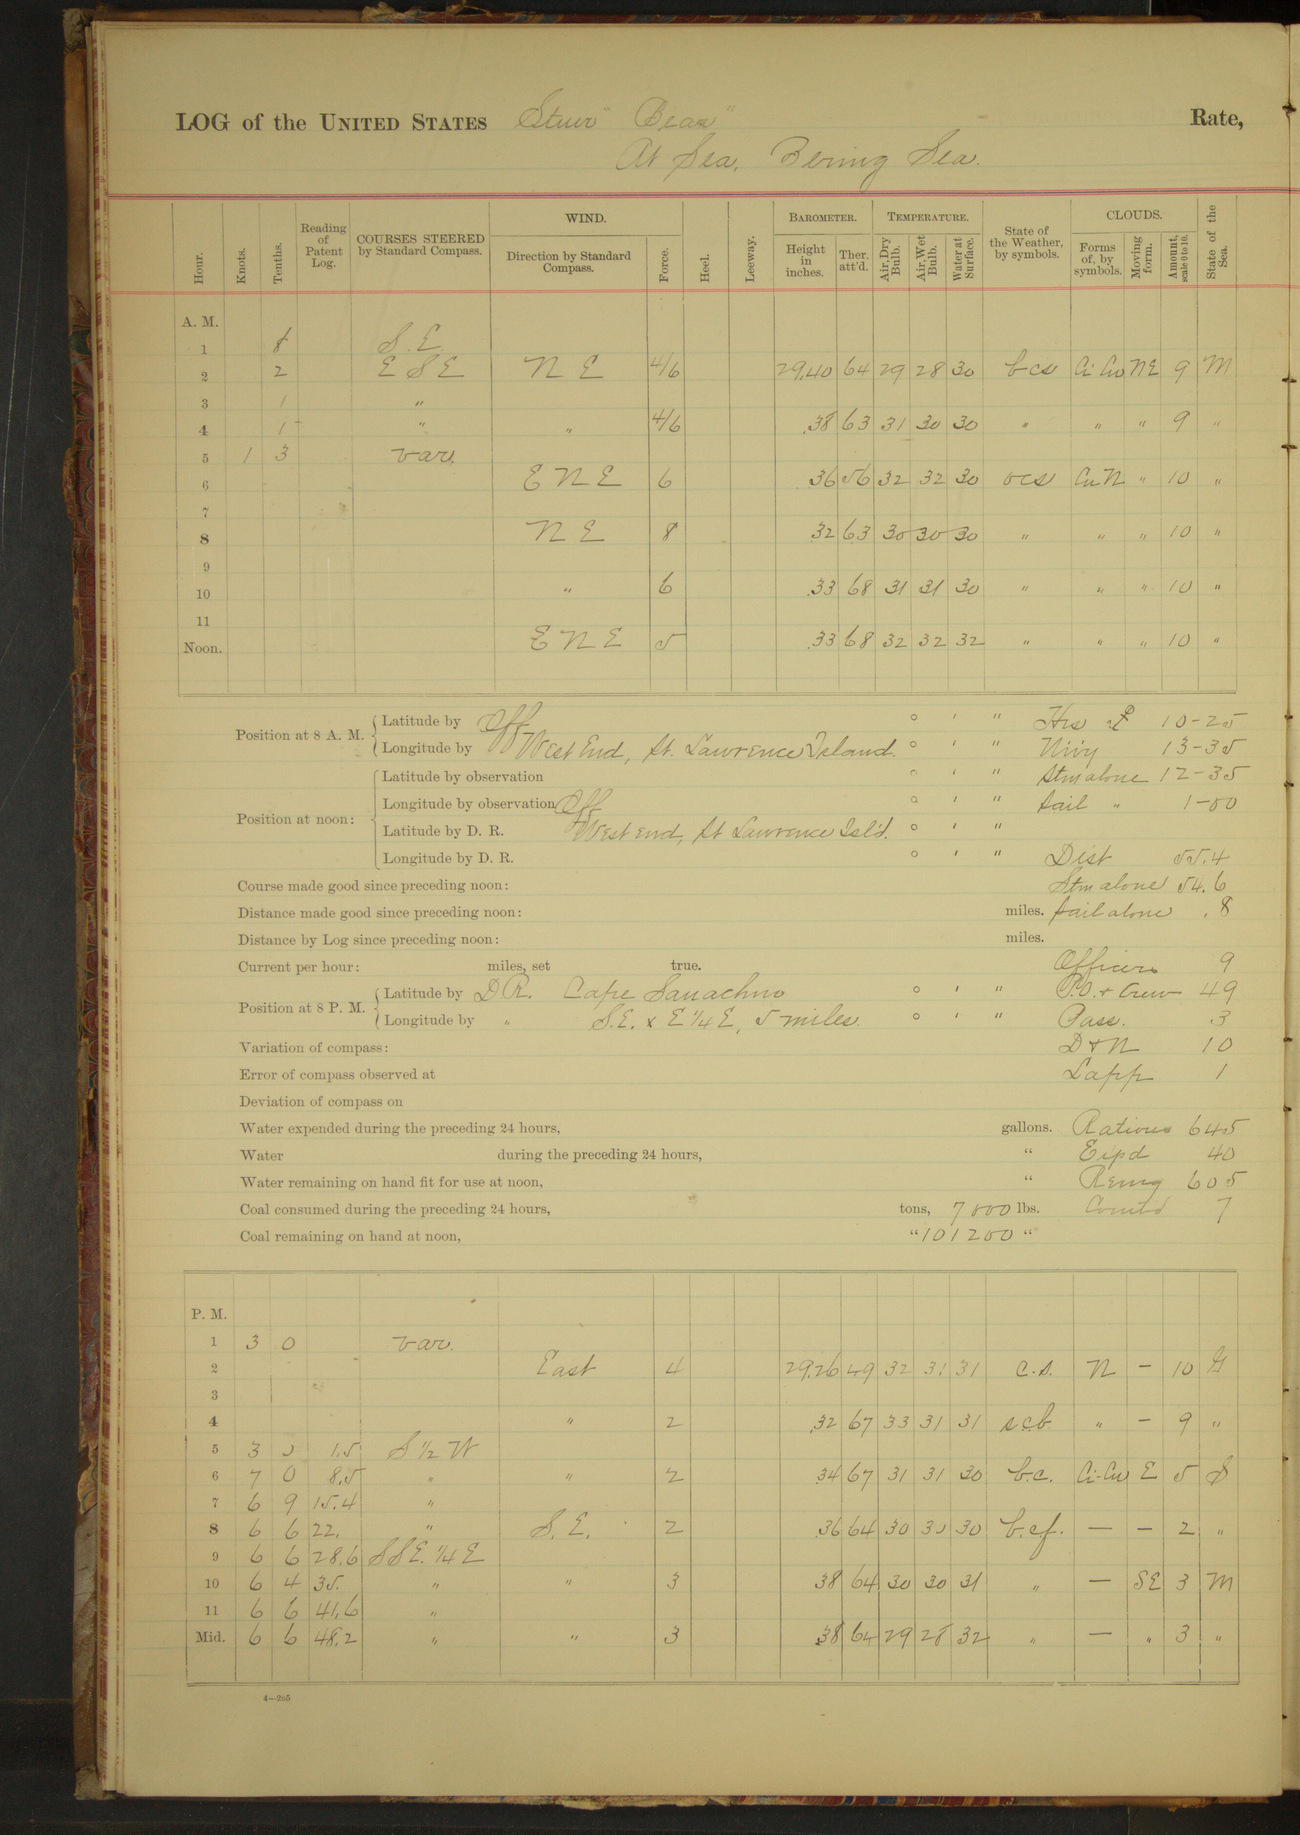 LOG of the UNITED STATES Stmr "Bear" Rate,
At Sea, Bering Sea.
Hour. Knots. Tenths. Reading of Patent Log. COURSES STEERED by Standard Compass. WIND. Direction by Standard Compass. Force. Heel. Leeway. BAROMETER. Height in inches. Ther. att'd. TEMPERATURE. Air, Dry Bulb. Air, Wet Bulb. Water at Surface. State of the Weather, by symbols. CLOUDS. Forms of, by symbols. Moving form. Amount, scale 0 to 10. State of the Sea.
A. M.
1 8 S. E.
2 2 E S E N E 4/6 29.40 64 29 28 30 bcs Ci Cu NE 9 M
3 1 "
4 1 " " 4/6 .38 63 31 30 30 " " " 9 "
5 1 3 var.
6 E N E 6 .36 56 32 32 30 ocs CuN " 10 "
7
8 N E 8 .32 63 30 30 30 " " " 10 "
9
10 " 6 .33 68 31 31 30 " " " 10 "
11
Noon. E N E 5 .33 68 32 32 32 " " " 10 "
Position at 8 A. M. Latitude by Off ° ' " Hrs 10-25
Longitude by West End, St. Lawrence Island. ° ' " 13-35
Position at noon: Latitude by observation ° ' " Stm alone 12-35
Longitude by observation Off ° ' " Sail " 1-00
Latitude by D. R. West end, St Lawrence Isl'd. ° ' "
Longitude by D. R. ° ' " Dist 55.4
Course made good since preceding noon: Stm alone 54.6
Distance made good since preceding noon: miles. Sail alone .8
Distance by Log since preceding noon: miles.
Current per hour: miles, set true. Officers 9
Position at 8 P. M. Latitude by D R. Cape ° ' " P.O. + Crew 49
Longitude by " S.E. x E 1/4 E, 5 miles. ° ' " Pass. 3
Variation of compass: D + N 10
Error of compass observed at Lapp 1
Deviation of compass on
Water expended during the preceding 24 hours, gallons. Rations 645
Water during the preceding 24 hours, " Expd 40
Water remaining on hand fit for use at noon, " Remg 605
Coal consumed during the preceding 24 hours, tons, 7000 lbs. Comtd 7
Coal remaining on hand at noon, " 101200 "
P. M.
1 3 0 var.
2 East 4 29.26 49 32 31 31 c.s. N — 10 G
3
4 " 2 .32 67 33 31 31 scb " — 9 "
5 3 0 1.5 S 1/2 W
6 7 0 8.5 " " 2 .34 67 31 31 30 b.c. Ci-Cu E 5 S
7 6 9 15.4 "
8 6 6 22. " S. E. 2 .36 64 30 30 30 b.c.f. — — 2 "
9 6 6 28.6 SSE. 1/4 E
10 6 4 35. " " 3 .38 64 30 30 31 " — SE 3 M
11 6 6 41.6 "
Mid. 6 6 48.2 " " 3 .38 64 29 28 32 " — " 3 "
4—265